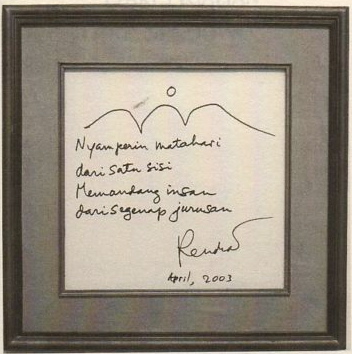 Nyamperin matahari
dari satu sisi
Memandang insan
dari segenap jurusan
Rendra
April, 2003